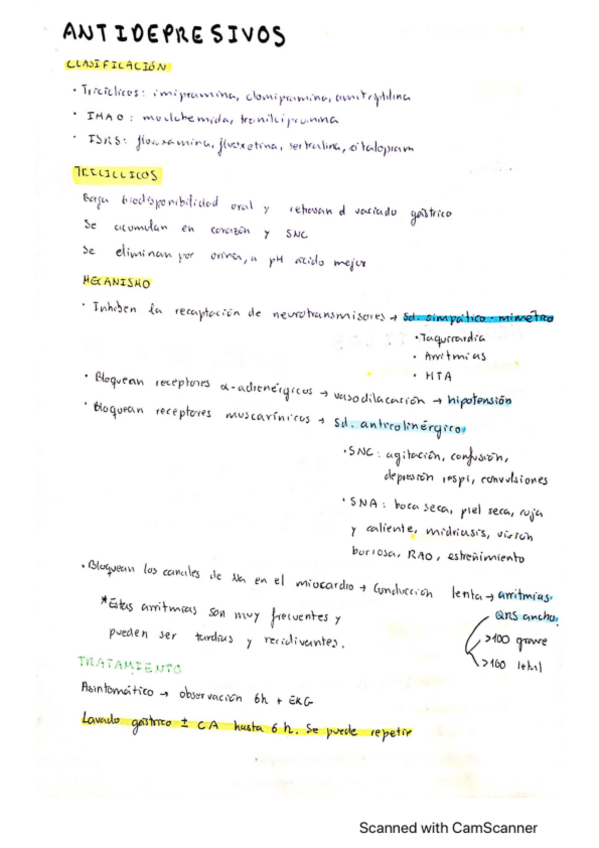 ANTIDEPRESIVOS
CLASIFICACIÓN
· Tricíclicos: imipramina, clomipramina, amitriptilina
· IMAO: moclobemida, tranilcipromina
· ISRS: fluvoxamina, fluoxetina, sertralina, citalopram
TRICICLICOS
Baja biodisponibilidad oral y retrasan el vaciado gástrico
Se acumulan en corazón y SNC
Se eliminan por orina, a pH ácido mejor
MECANISMO
· Inhiben la recaptación de neurotransmisores → Sd. simpático-mimético
· Taquicardia
· Arritmias
· HTA
· Bloquean receptores α-adrenérgicos → vasodilatación → hipotensión
· Bloquean receptores muscarínicos → Sd. anticolinérgico
· SNC: agitación, confusión,
depresión respi, convulsiones
· SNA: boca seca, piel seca, roja
y caliente, midriasis, visión
borrosa, RAO, estreñimiento
· Bloquean los canales de Na en el miocardio → Conducción lenta → arritmias
QRS ancho
*Estas arritmias son muy frecuentes y
pueden ser tardías y recidivantes.
>100 grave
>160 letal
TRATAMIENTO
Asintomático → observación 6h + EKG
Lavado gástrico ± CA hasta 6 h. Se puede repetir
Scanned with CamScanner